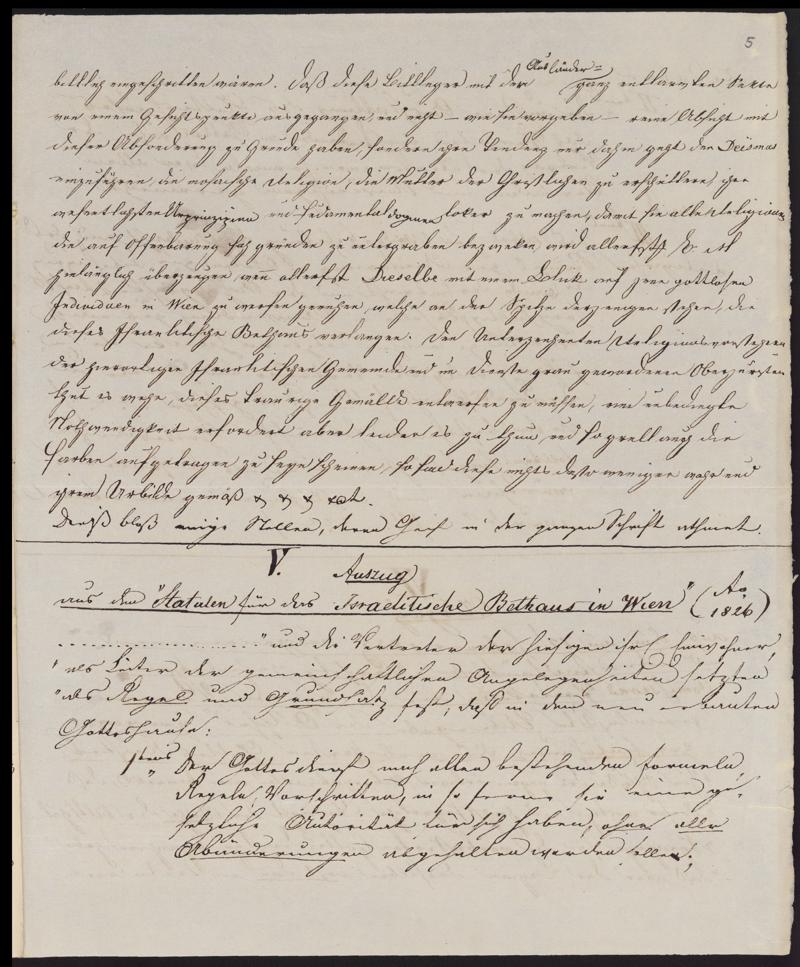 5
bittlich eingeschritten wären. Daß diese Bittleger mit der Ausländer= ganz entlarvten Sekte
von einem Gesichtspunkte ausgegangen, und nicht — wie sie vorgeben — reine Absicht mit
dieser Absonderung zu Grunde haben, sondern ihre Tendenz nur dahin geht den Deismus
einzuführen, die mosaische Religion, die Mutter der Christlichen zu erschüttern, ihre
wesentlichsten Urprinzipien und Fundamental Dogmen loker zu machen, damit sie alle Religionen
die auf Offenbarung sich gründen zu untergraben bezweken, wird allerhöchst
hinlänglich überzeugen, wenn allerhöchst Dieselbe mit einem Blick auf jene gottlosen
Individuen in Wien zu werfen geruhen, welche an der Spitze derjenigen stehen, die
dieses Israelitische Bethaus verlangen. Den Unterzeichneten Religionsvorstehern
der hierortigen Israelitischen Gemeinde und im Dienste grau gewordenen Oberjuristen
thut es wehe, dieses traurige Gemälde entwerfen zu müssen, eine unbedingte
Nothwendigkeit erfordert aber leider es zu thun, und so grell auch die
Farben aufgetragen zu seyn scheinen, so sind diese nichts desto weniger wahr und
ihrem Urbilde gemäß
Dieß bloß einige Stellen, deren Geist in der ganzen Schrift athmet.
V. Auszug
aus den "Statuten für das Israelitische Bethaus in Wien" (Ao 1826)
"und die Vertreter der hiesigen isr. Einwohner,
"als Leiter der gemeinschaftlichen Angelegenheiten setzten
"als Regel und Grundsatz fest, daß in dem neu erbauten
Gotteshause:
1tens Der Gottesdienst nach allen bestehenden Formeln,
Regeln, Vorschriften, in so ferne sie eine ge-
setzliche Autorität für sich haben, ohne alle
Abänderungen abgehalten werden solle;